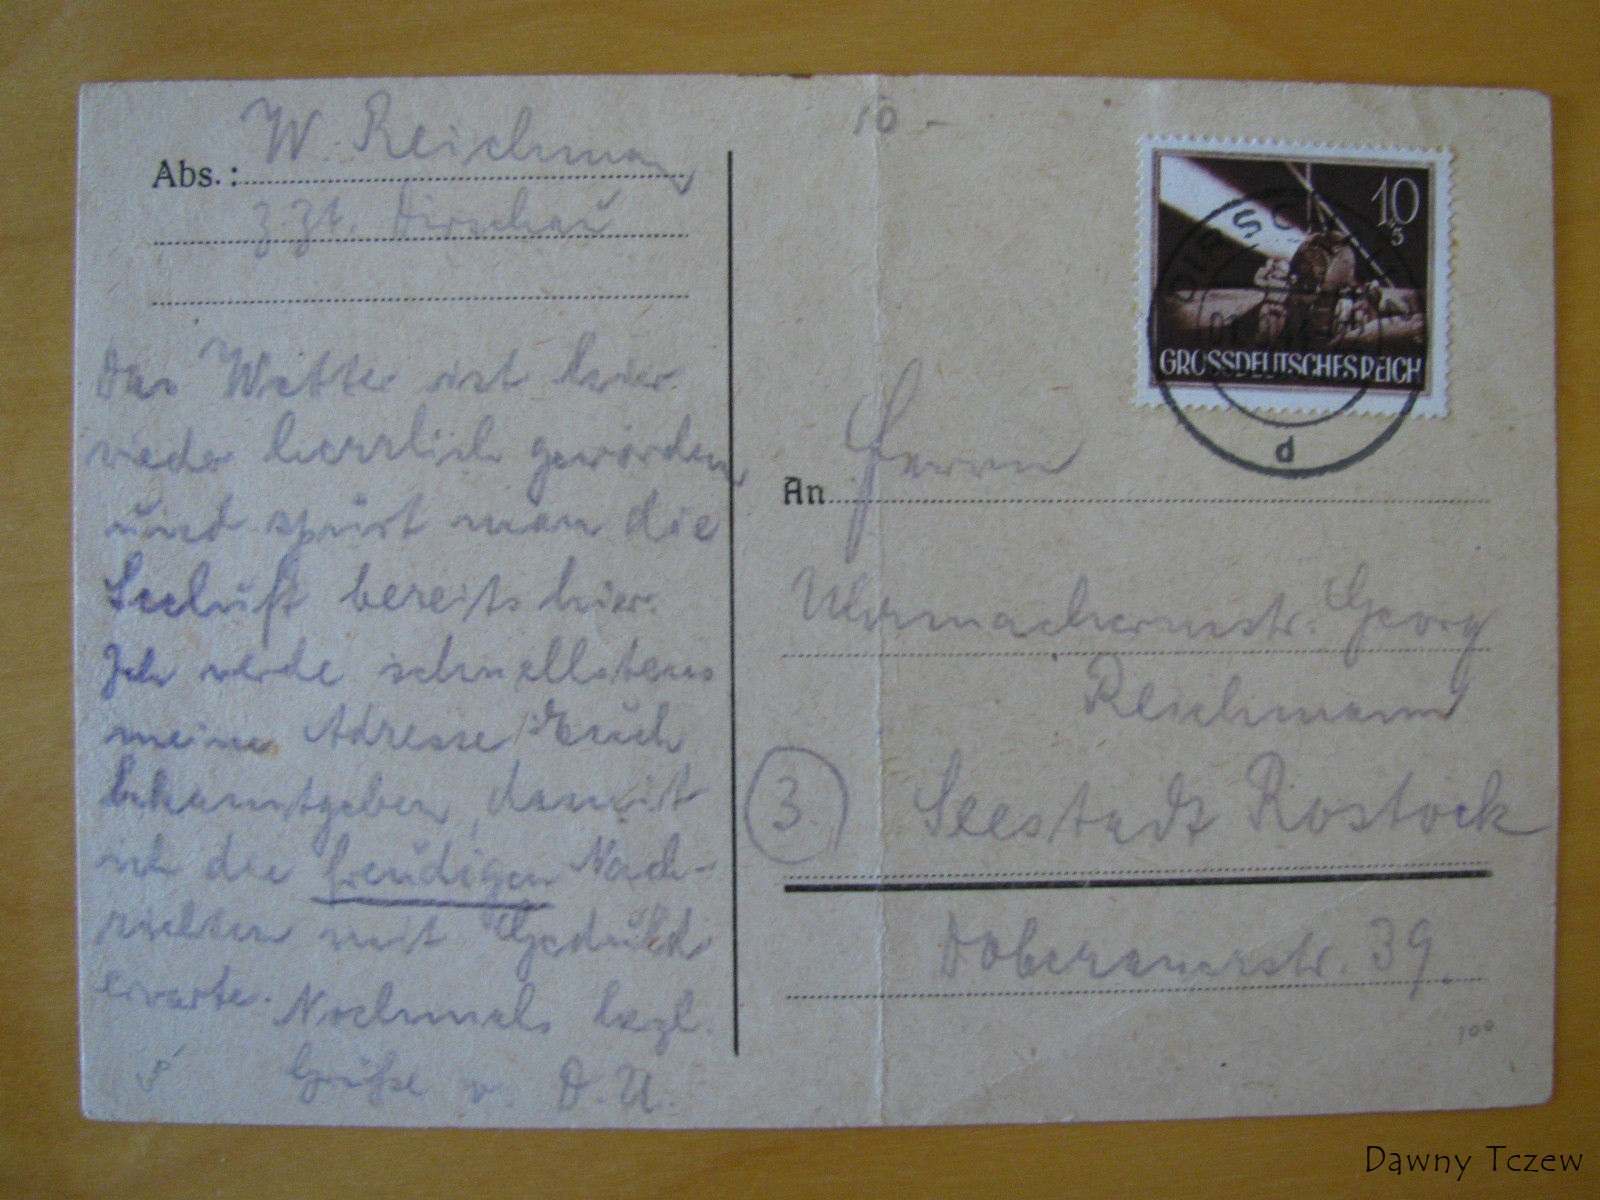 W. Reichmann
Abs.:
z. Zt. Dirschau
Das Wetter ist hier
wieder herrlich geworden
und spürt man die
Seeluft bereits hier.
Ich werde schnellstens
meine Adresse Euch
bekanntgeben, damit
ich die freudigen Nach-
richten mit Geduld
erwarte. Nochmals hrzl.
Grüße v. D. U.
10 -
10
GROSSDEUTSCHES REICH
DIRSCHAU
d
An Herrn
Uhrmachermstr. Georg
Reichmann
3. Seestadt Rostock
Doberanerstr. 39.
100
Dawny Tczew